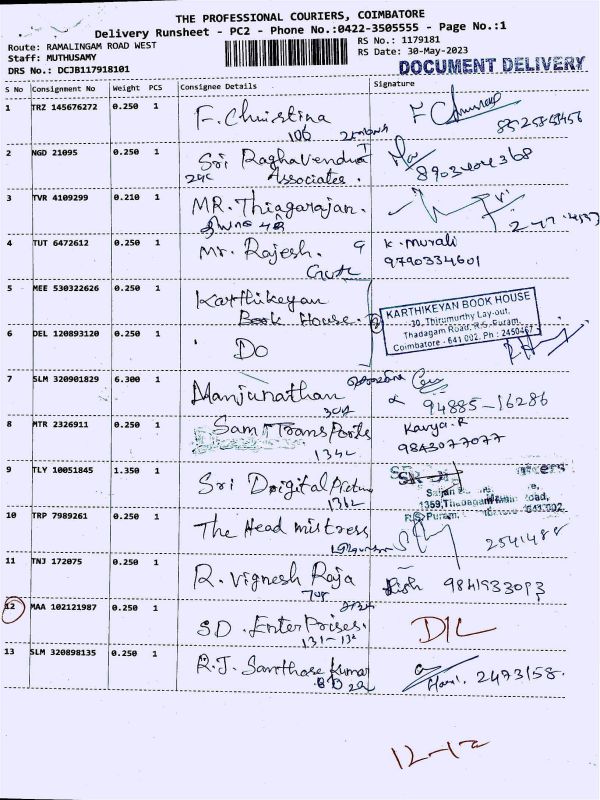 THE PROFESSIONAL COURIERS, COIMBATORE
Delivery Runsheet - PC2 - Phone No.:0422-3505555 - Page No.:1
Route: RAMALINGAM ROAD WEST
RS No.: 1179181
Staff: MUTHUSAMY
RS Date: 30-May-2023
DRS No.: DCJB117918101
DOCUMENT DELIVERY
S No Consignment No Weight PCS Consignee Details Signature
1 TRZ 145676272 0.250 1 F. Christina
106
2 NGD 21095 0.250 1 Sri Raghavendra
24c Associates. 8903404368
3 TVR 4109299 0.210 1 MR. Thiagarajan.
4 TUT 6472612 0.250 1 Mr. Rajesh. 9 K. Murali
9790334601
5 MEE 530322626 0.250 1 Karthikeyan
Book House.
KARTHIKEYAN BOOK HOUSE
30, Thirumurthy Lay-out,
Thadagam Road, R.S. Puram,
Coimbatore - 641 002. Ph : 2450467
6 DEL 120893120 0.250 1 Do
7 SLM 320901829 6.300 1 Manjunathan
94885-16286
8 MTR 2326911 0.250 1 Sam Trans Ports Kavya. R
134c 9843077077
9 TLY 10051845 1.350 1 Sri Doigital Picture
1359, Thadagam Main Road,
R.S. Puram, 641 002.
10 TRP 7989261 0.250 1 The Head mistress
2541488
11 TNJ 172075 0.250 1 R. Vignesh Raja 9841933093
12 MAA 102121987 0.250 1 S.D. Enterprises. D/L
13 SLM 320898135 0.250 1 R.J. Santhose Kumar 2473158.
12-12